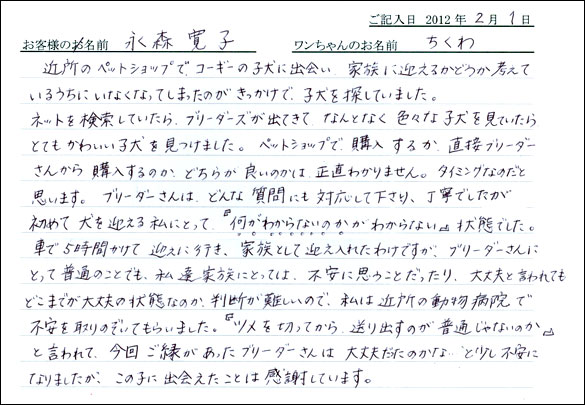 ご記入日 2012年 2月 1日
お客様のお名前 永森 寛子 ワンちゃんのお名前 ちくわ
近所のペットショップで、コーギーの子犬に出会い、家族に迎えるかどうか考えて
いるうちにいなくなってしまったのがきっかけで、子犬を探していました。
ネットを検索していたら、ブリーダーズが出てきて、なんとなく色々な子犬を見ていたら
とてもかわいい子犬を見つけました。ペットショップで購入するか、直接ブリーダー
さんから購入するのか、どちらが良いのかは、正直わかりません。タイミングなのだと
思います。ブリーダーさんは、どんな質問にも対応して下さり、丁寧でしたが
初めて犬を迎える私にとって、『何がわからないのかがわからない』状態でした。
車で5時間かけて迎えに行き、家族として迎え入れたわけですが、ブリーダーさんに
とって普通のことでも、私達家族にとっては、不安に思うことだったり、大丈夫と言われても
どこまでが大丈夫の状態なのか、判断が難しいので、私は近所の動物病院で
不安を取りのぞいてもらいました。『ツメを切ってから、送り出すのが普通じゃないのか』
と言われて、今回ご縁があったブリーダーさんは大丈夫だたのかな…と少し不安に
なりましたが、この子に出会えたことは感謝しています。